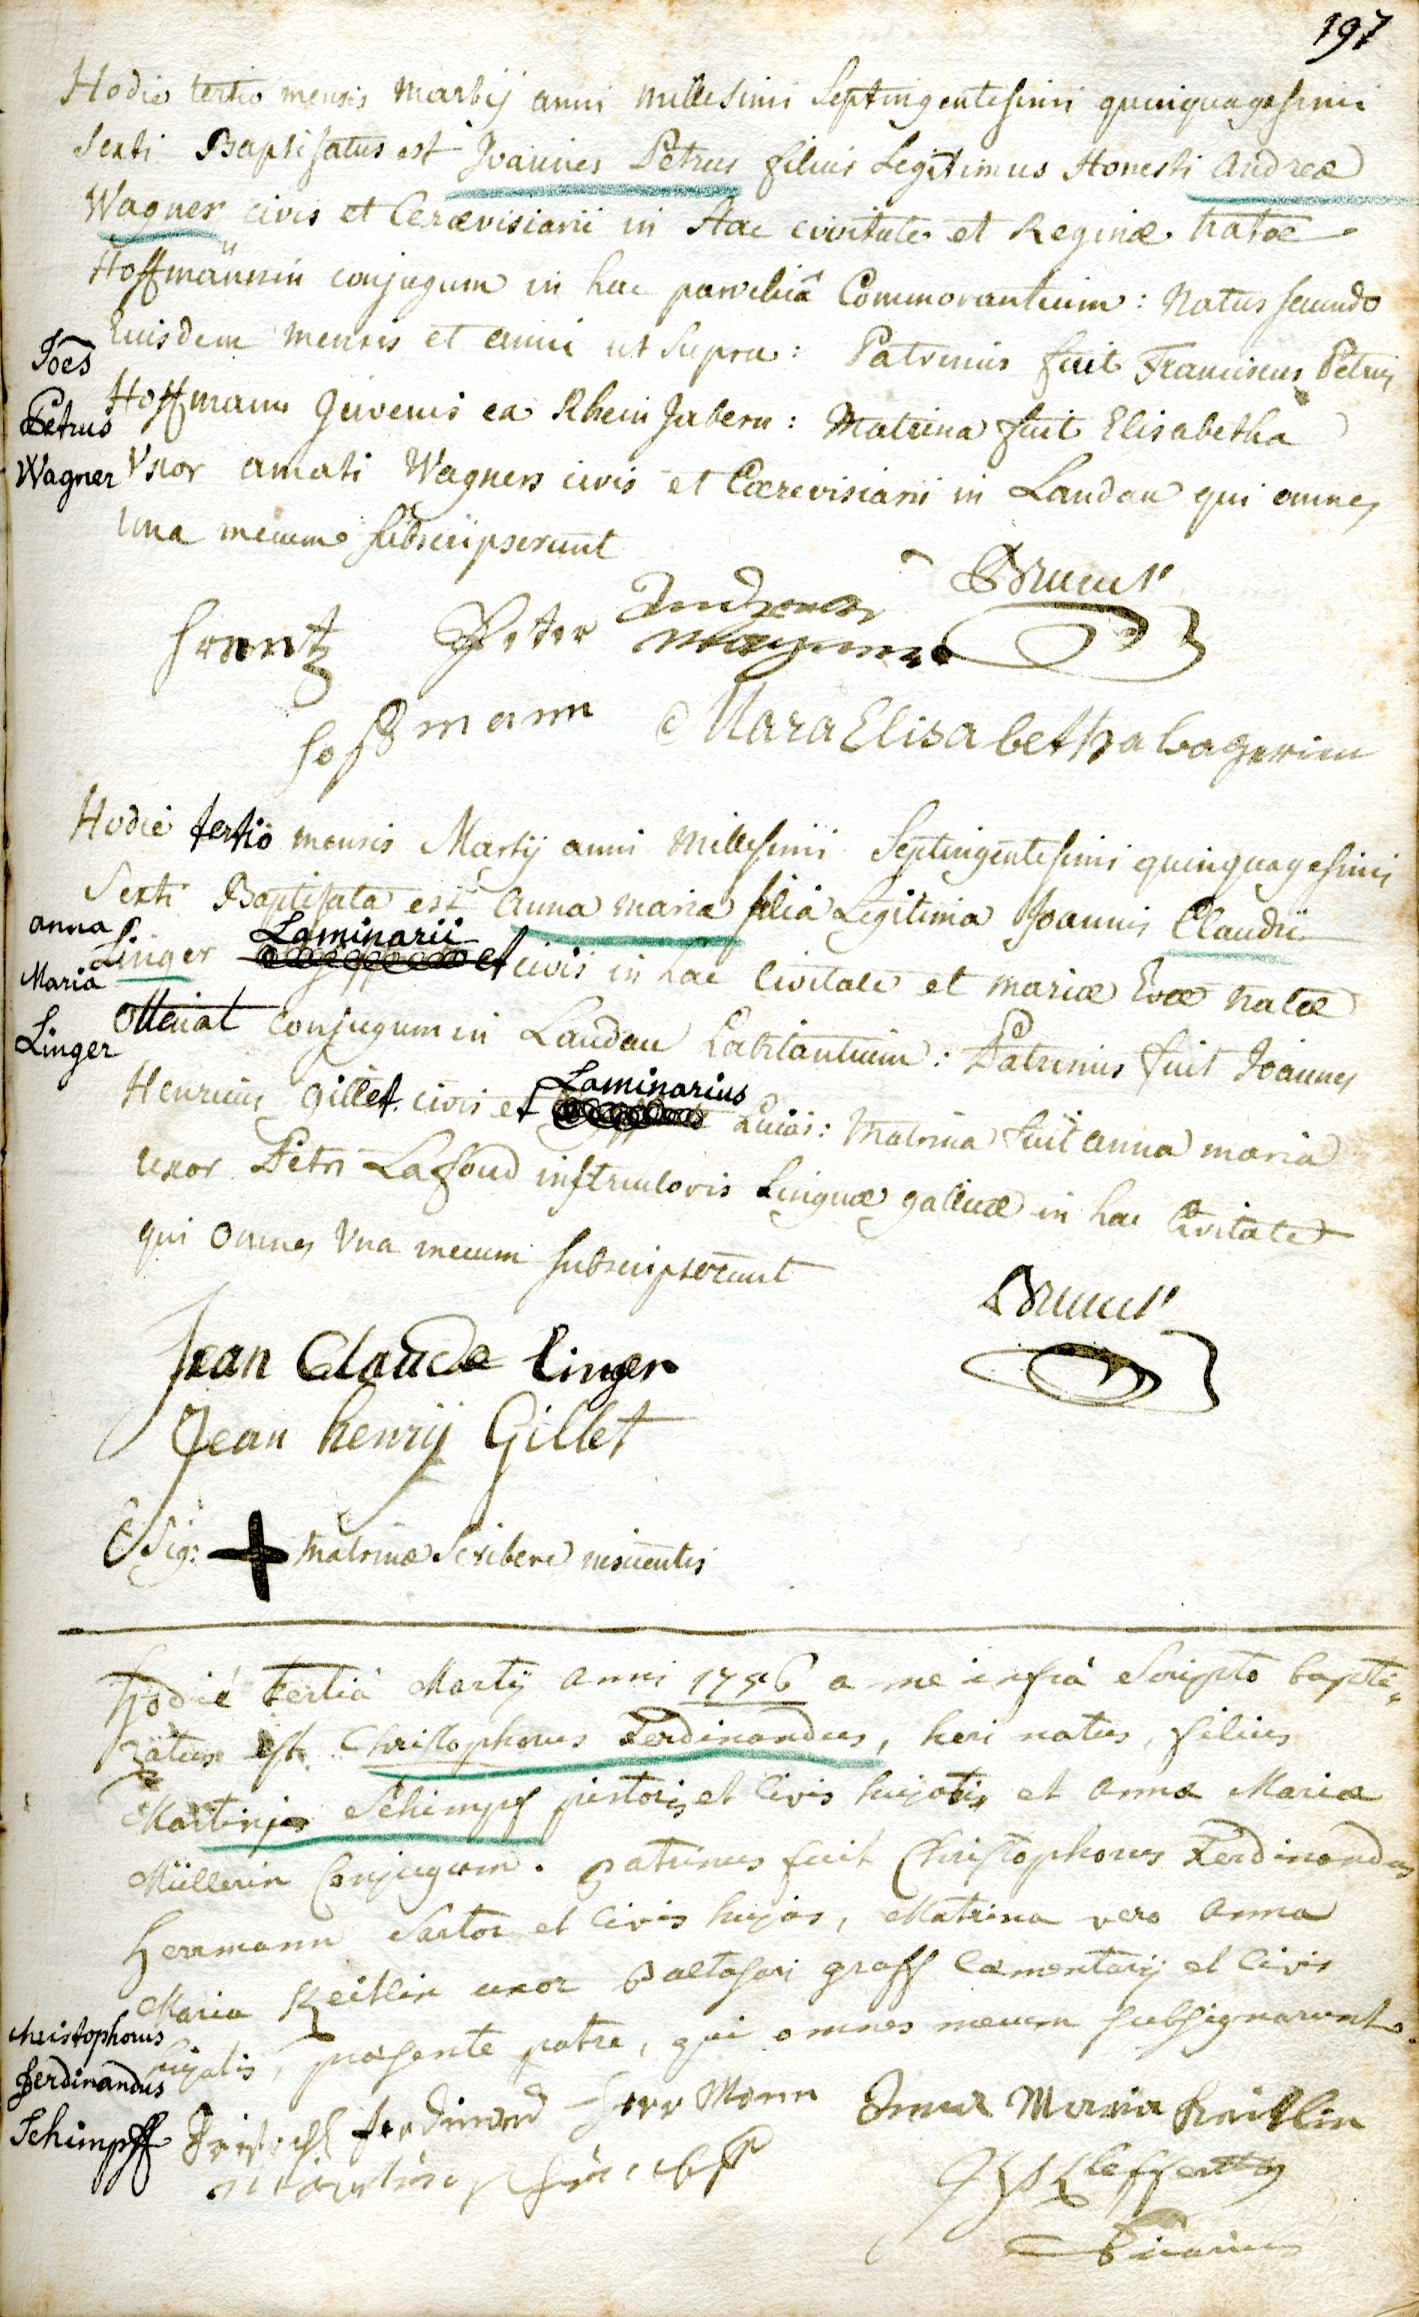 197
Hodie tertio mensis Martij anni millesimi Septingentesimi quinquagesimi
Sexti Baptisatus est Joannes Petrus filius Legitimus Honesti Andreæ
Wagner civis et Cerævisiarii in Hac civitate et Reginæ natæ
Hoffmännin conjugum in hac parochiâ Commorantium: Natus secundo
Eiusdem mensis et anni ut supra: Patrinus fuit Franciscus Petrus
Joēs
Petrus
Wagner
Hoffmann Juvenis ex Rhein Zabern: Matrina fuit Elisabetha
Uxor amati Wagners civis et Cærevisiarii in Landau qui omnes
una mecum subscripserunt
Frantz Peter
Hoffmann
Andreas
Wagner
Maria Elisabetha Wagnerin
Hodie tertio mensis Martij anni Millesimi Septingentesimi quinquagesimi
Sexti Baptisata est Anna Maria filia Legitima Joannis Claudii
anna
Maria
Linger
Linger Laminarii et civis in hac Civitate et Mariæ Evæ natæ
conjugum in Landau habitantium: Patrinus fuit Joannes
Henricus Gillet civis et Laminarius Matrina fuit anna maria
uxor Petri Lafond instructoris Linguæ gallicæ in hac Civitate
qui Omnes Una mecum subscripserunt
Jean Claude linger
Jean henrÿ Gillet
Sig: + Matrinæ Scribere nescientis
Hodié tertiâ Martÿ Anni 1756 a me infrà Scripto bapti=
zatus est Christophorus Ferdinandus, heri natus, filius
Martini Schimpf pistoris et Civis hujatis et Annæ Mariæ
Müllerin Conjugum. Patrinus fuit Christophorus Ferdinandus
Herrmann Sartor et Civis hujas, Matrina vero Anna
Maria Keitlin uxor Baltasari graff Cæmentarÿ et Civis
hujatis, præsente patre, qui omnes mecum subsignarunt.
Christophorus
Ferdinandus
Schimpff
ferdinand Herr Mann
Anna Maria Keitlin
Kleffer
Vicarius